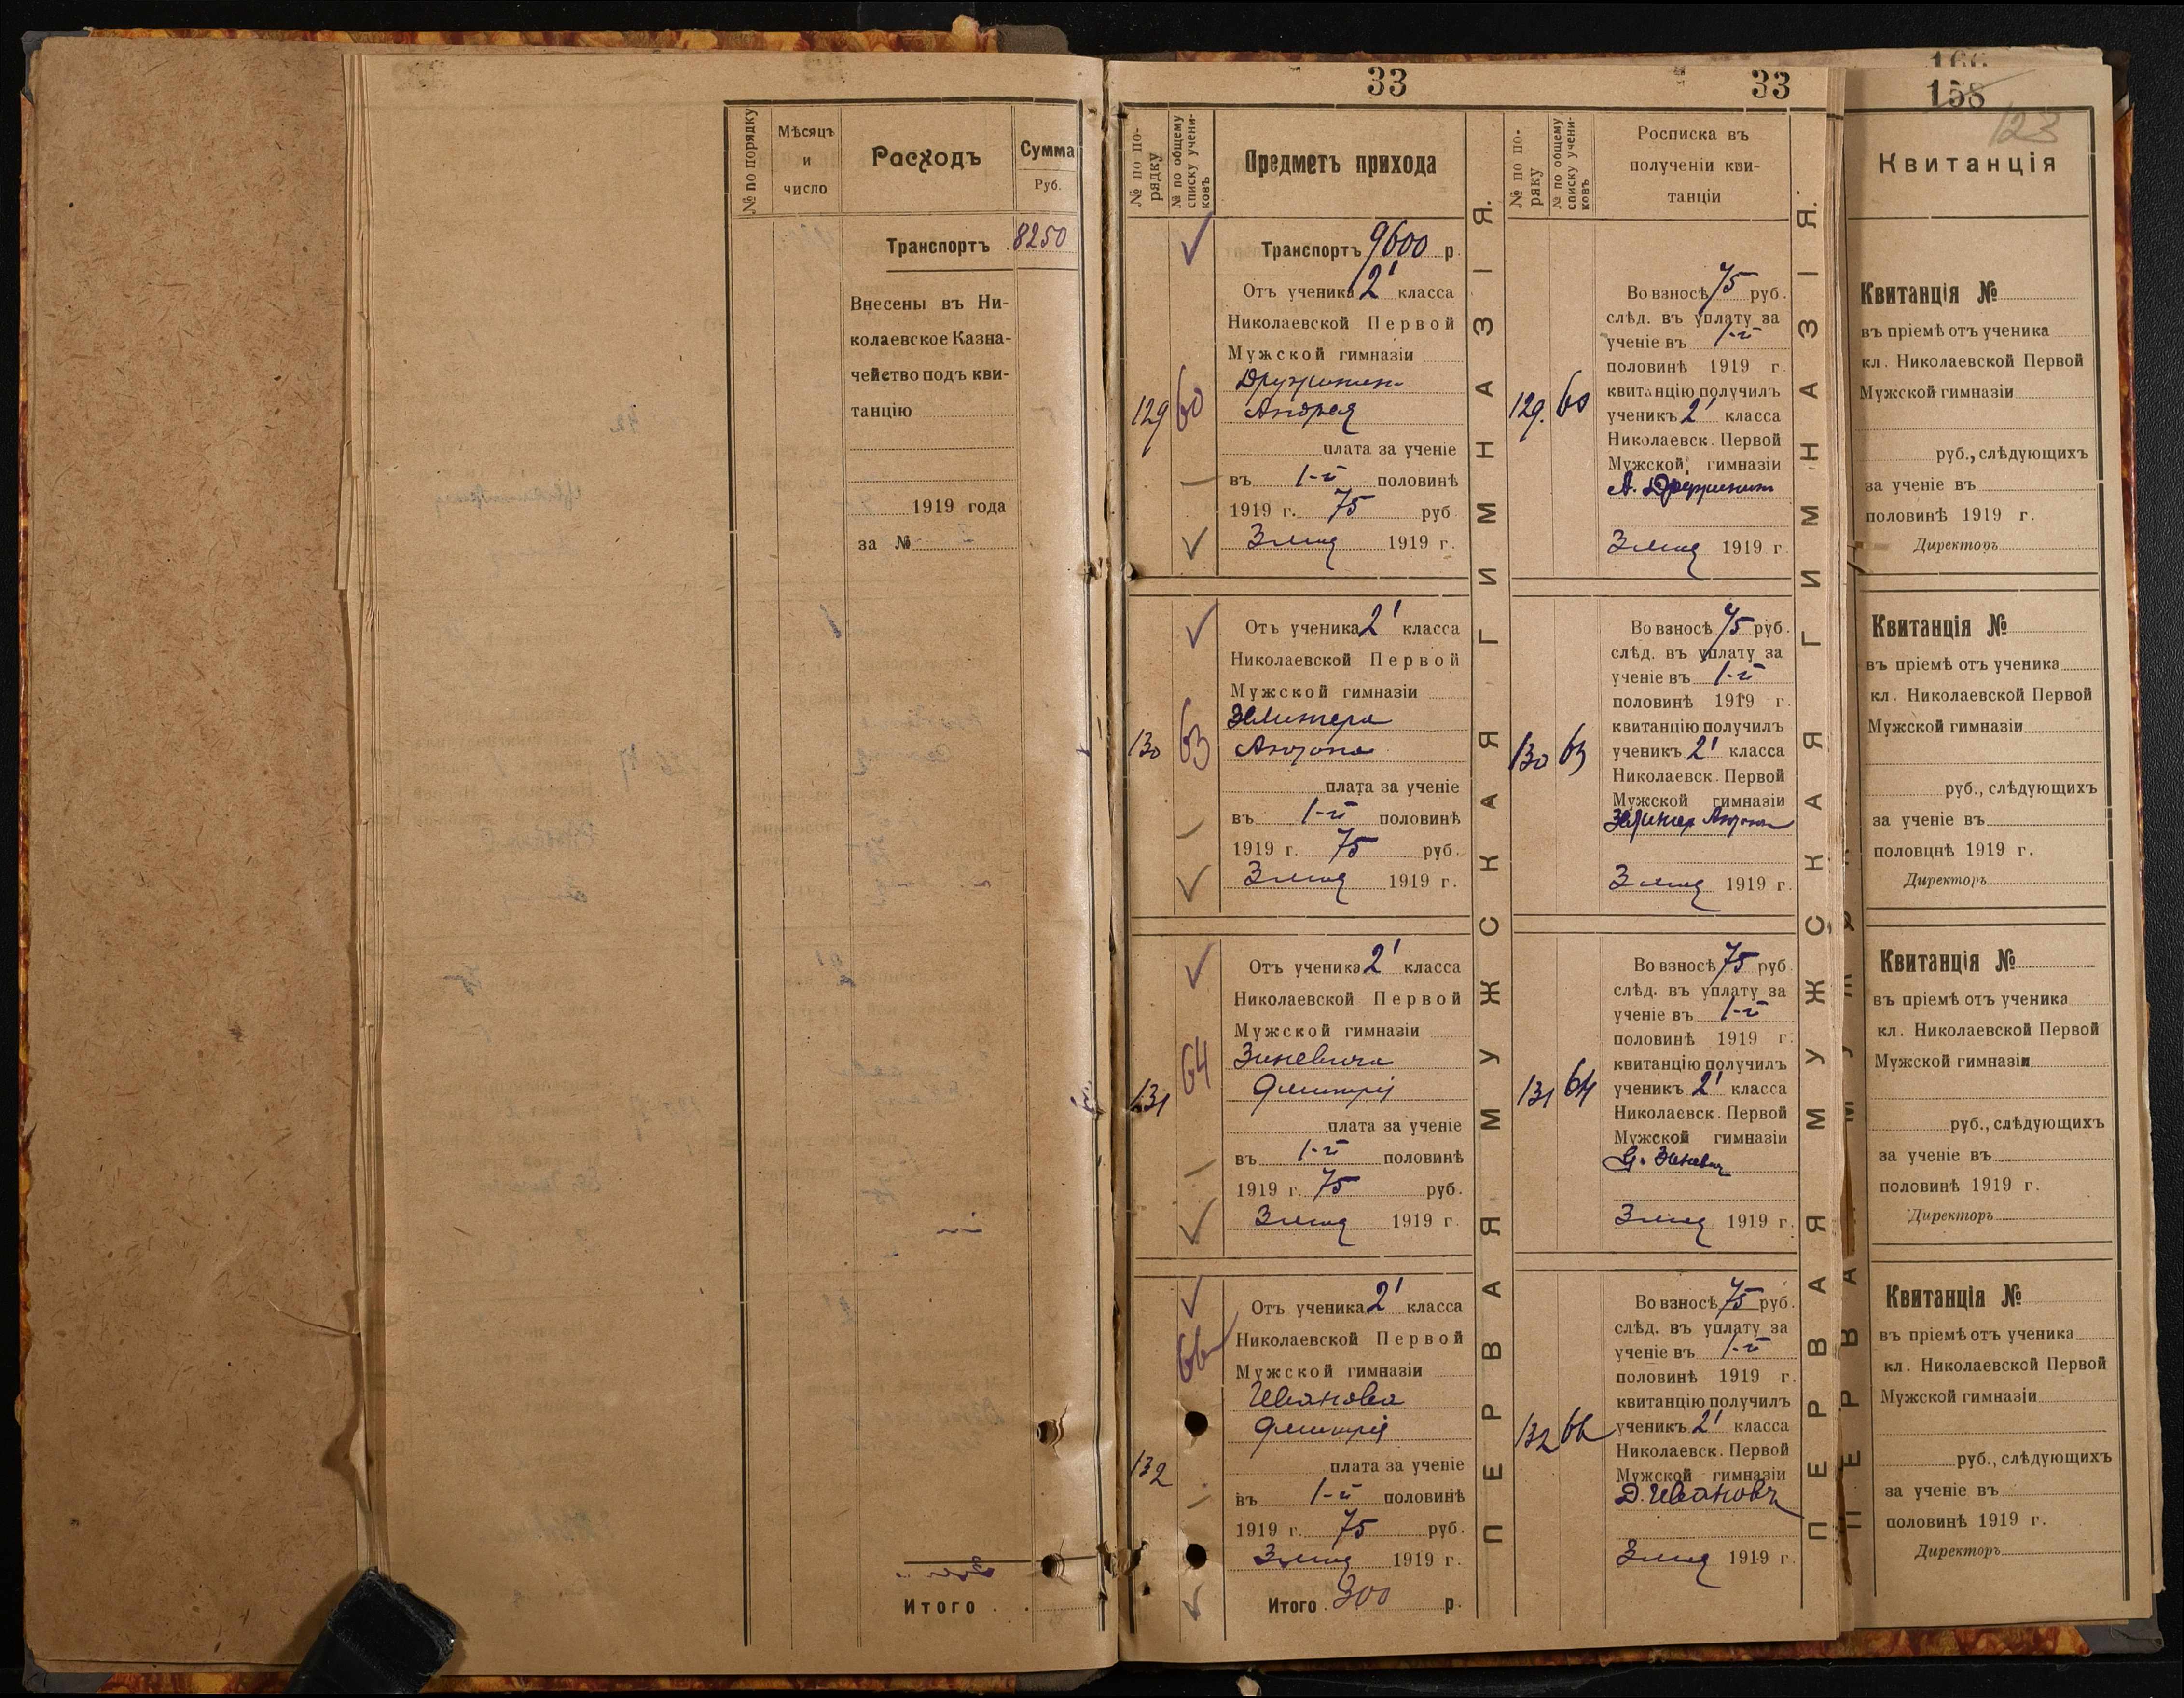 № по порядку
Мѣсяцъ
и
число
Расходъ
Сумма
Руб.
Транспортъ 8250
Внесены въ Ни-
колаевское Казна-
чейство подъ кви-
танцію
1919 года
за №
Итого
33
№ по по-
рядку
№ по общему
списку учени-
ковъ
Предметъ прихода
Транспортъ 9600 р.
Отъ ученика 2' класса
Николаевской Первой
Мужской гимназіи
Дружинин
129 60 Андрея
плата за ученіе
въ 1-й половинѣ
1919 г. 75 руб
3 мая 1919 г.
Отъ ученика 2' класса
Николаевской Первой
Мужской гимназіи
130 63
плата за ученіе
въ 1-й половинѣ
1919 г. 75 руб.
3 мая 1919 г.
Отъ ученика 2' класса
Николаевской Первой
Мужской гимназіи
Зиневича
131 64 Дмитрій
плата за ученіе
въ 1-й половинѣ
1919 г. 75 руб.
3 мая 1919 г.
Отъ ученика 2' класса
66 Николаевской Первой
Мужской гимназіи
Иванова
Дмитрія
132 плата за ученіе
въ 1-й половинѣ
1919 г. 75 руб.
3 мая 1919 г.
Итого 300 р.
ПЕРВАЯ МУЖСКАЯ ГИМНАЗІЯ.
33
№ по по-
ряку
№ по общему
списку учени-
ковъ
Росписка въ
полученіи кви-
танціи
Во взносѣ 75 руб.
слѣд. въ уплату за
ученіе въ 1-й
половинѣ 1919 г.
квитанцію получилъ
129. 60 ученикъ 2' класса
Николаевск. Первой
Мужской гимназіи
А. Дружинин
3 мая 1919 г.
Во взносѣ 75 руб.
слѣд. въ уплату за
ученіе въ 1-й
половинѣ 1919 г.
квитанцію получилъ
130 63 ученикъ 2' класса
Николаевск. Первой
Мужской гимназіи
3 мая 1919 г.
Во взносѣ 75 руб.
слѣд. въ уплату за
ученіе въ 1-й
половинѣ 1919 г.
квитанцію получилъ
131 64 ученикъ 2' класса
Николаевск. Первой
Мужской гимназіи
Д. Зиневич
3 мая 1919 г.
Во взносѣ 75 руб.
слѣд. въ уплату за
ученіе въ 1-й
половинѣ 1919 г.
квитанцію получилъ
132 66 ученикъ 2' класса
Николаевск. Первой
Мужской гимназіи
Д. Ивановъ
3 мая 1919 г.
ПЕРВАЯ МУЖСКАЯ ГИМНАЗІЯ.
158
123
Квитанція
Квитанція №
въ пріемѣ отъ ученика
кл. Николаевской Первой
Мужской гимназіи
руб., слѣдующихъ
за ученіе въ
половинѣ 1919 г.
Директоръ
Квитанція №
въ пріемѣ отъ ученика
кл. Николаевской Первой
Мужской гимназіи
руб., слѣдующихъ
за ученіе въ
половцнѣ 1919 г.
Директоръ
Квитанція №
въ пріемѣ отъ ученика
кл. Николаевской Первой
Мужской гимназіи
руб., слѣдующихъ
за ученіе въ
половинѣ 1919 г.
Директоръ
Квитанція №
въ пріемѣ отъ ученика
кл. Николаевской Первой
Мужской гимназіи
руб., слѣдующихъ
за ученіе въ
половинѣ 1919 г.
Директоръ